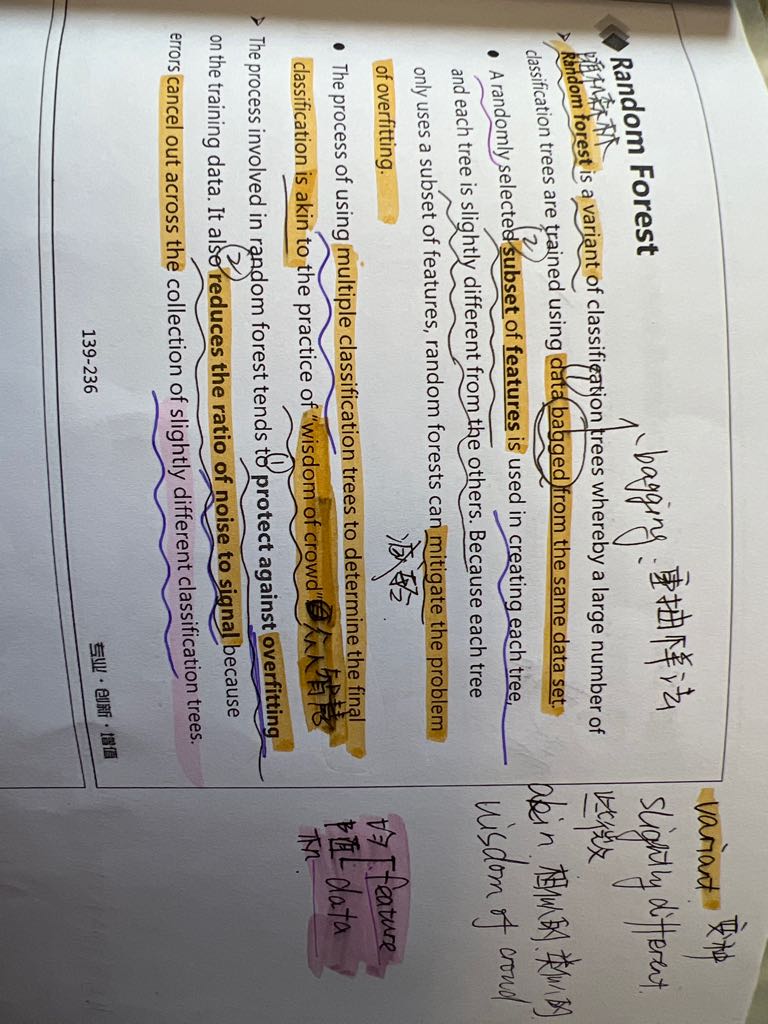 Random Forest
随机森林
Random forest is a variant of classification trees whereby a large number of
classification trees are trained using data bagged from the same data set.
1、bagging、重抽样法
①
A randomly selected subset of features is used in creating each tree,
②
and each tree is slightly different from the others. Because each tree
only uses a subset of features, random forests can mitigate the problem
减轻
of overfitting.
The process of using multiple classification trees to determine the final
classification is akin to the practice of "wisdom of crowd"
众人智慧
The process involved in random forest tends to protect against overfitting
①
on the training data. It also reduces the ratio of noise to signal because
②
errors cancel out across the collection of slightly different classification trees.
139-236
专业·创新·增值
variant 变种
slightly different
akin 相似的.类似的
wisdom of crowd
feature
随机 data